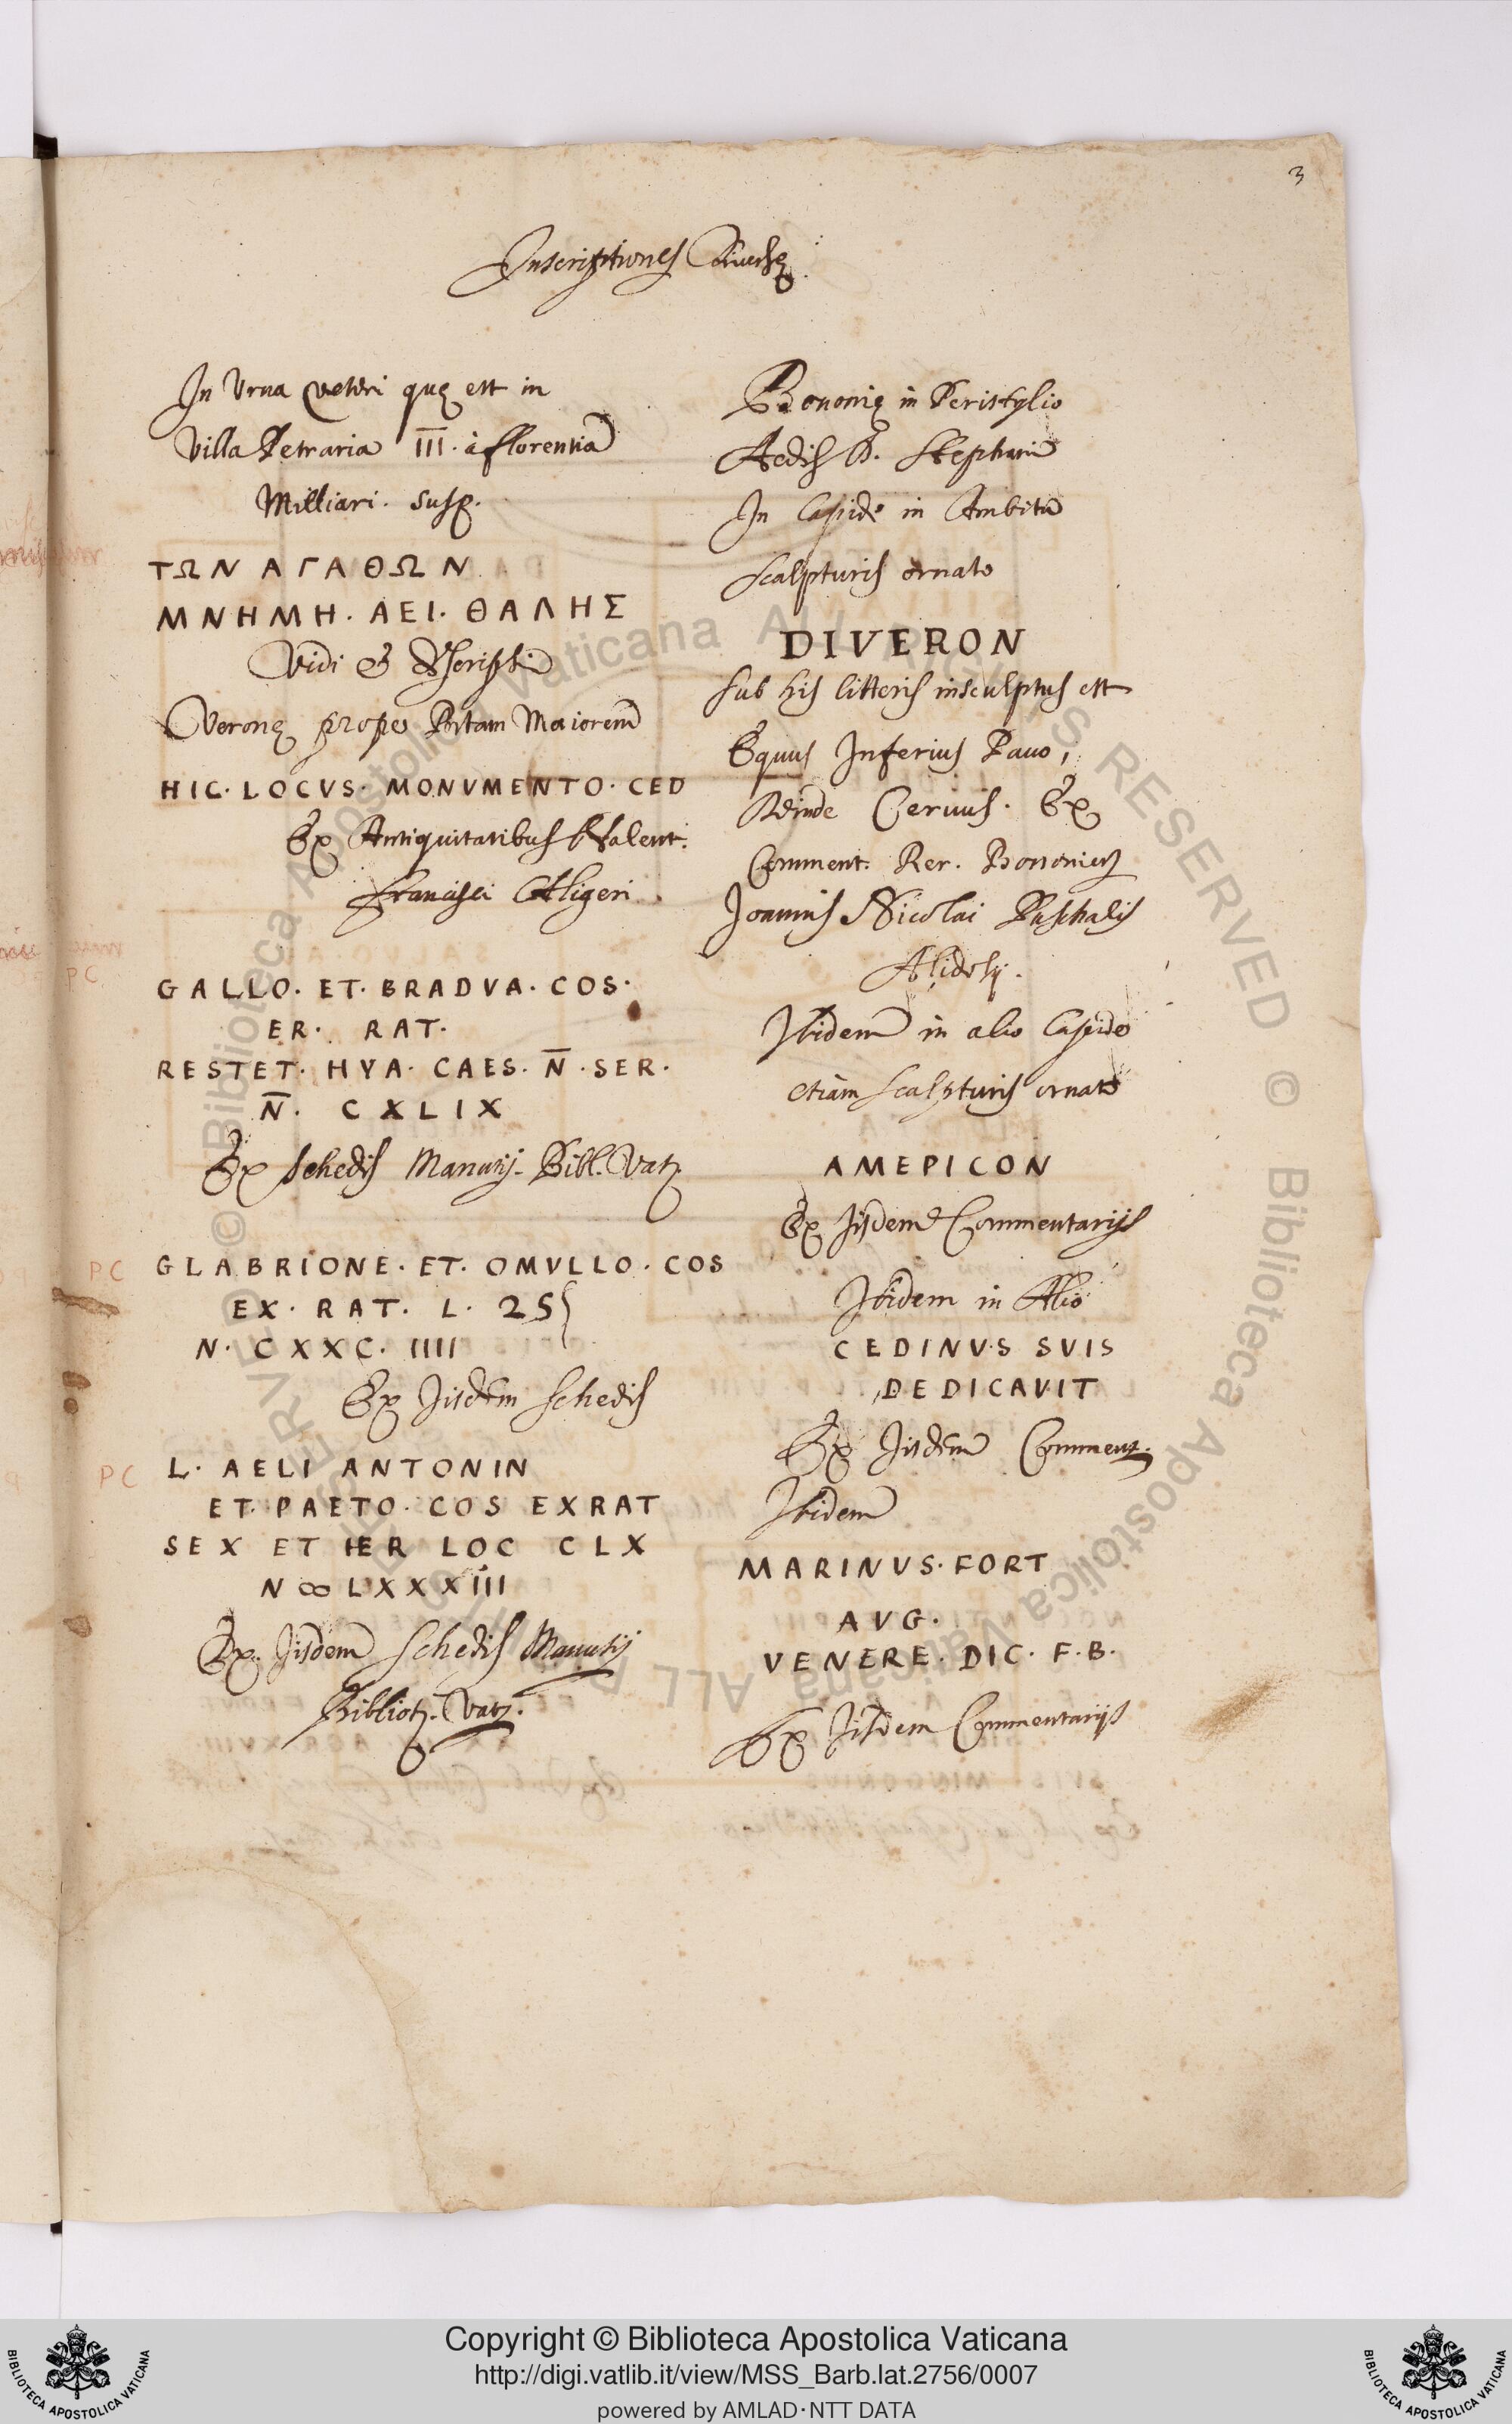 3
Inscriptiones Diuersę
In Vrna veteri quę est in
Villa Petraria III. à florentia
Milliari. Susp.
ΤΩΝ ΑΓΑΘΩΝ
ΜΝΗΜΗ. ΑΕΙ. ΘΑΛΗΣ
Vidi &
Veronę prope Portam Maiorem
HIC. LOCVS. MONVMENTO. CED
Ex Antiquitatibus
Francisci Aligeri
GALLO. ET. BRADVA. COS.
ER. RAT.
RESTET. HYA. CAES. N̅. SER.
N̅. CXLIX
Ex Schedis Manutij. Bibl. Vat.
PC
GLABRIONE. ET. OMVLLO. COS
EX. RAT. L. 2S
N. CXXC. IIII
Ex Iisdem Schedis
PC
L. AELI ANTONIN
ET. PAETO. COS EXRAT
SEX ET HER LOC CLX
N ∞ LXXXIII
Ex Iisdem Schedis Manutij
Bibliot. Vat.
PC
Bononię in Peristylio
Aedis D. Stephani
In Lapide in Ambitu
scalpturis ornato
DIVERON
sub his litteris insculptus est
Equus Inferius Pauo,
deinde Ceruus. Ex
Comment. Rer. Bononien
Joannis Nicolai Paschalis
Alidosij.
Ibidem in alio Lapide
etiam scalpturis ornato
AMEPICON
Ex Iisdem Commentarijs
Ibidem in Alio
CEDINVS SVIS
DEDICAVIT
Ex Iisdem Comment.
Ibidem
MARINVS. FORT
AVG.
VENERE. DIC. F. B.
Ex Iisdem Commentarijs
© Biblioteca Apostolica Vaticana ALL RIGHTS RESERVED © Biblioteca Apostolica Vaticana ALL RIGHTS RESERVED
Copyright © Biblioteca Apostolica Vaticana
http://digi.vatlib.it/view/MSS_Barb.lat.2756/0007
powered by AMLAD·NTT DATA
BIBLIOTECA APOSTOLICA VATICANA
BIBLIOTECA APOSTOLICA VATICANA